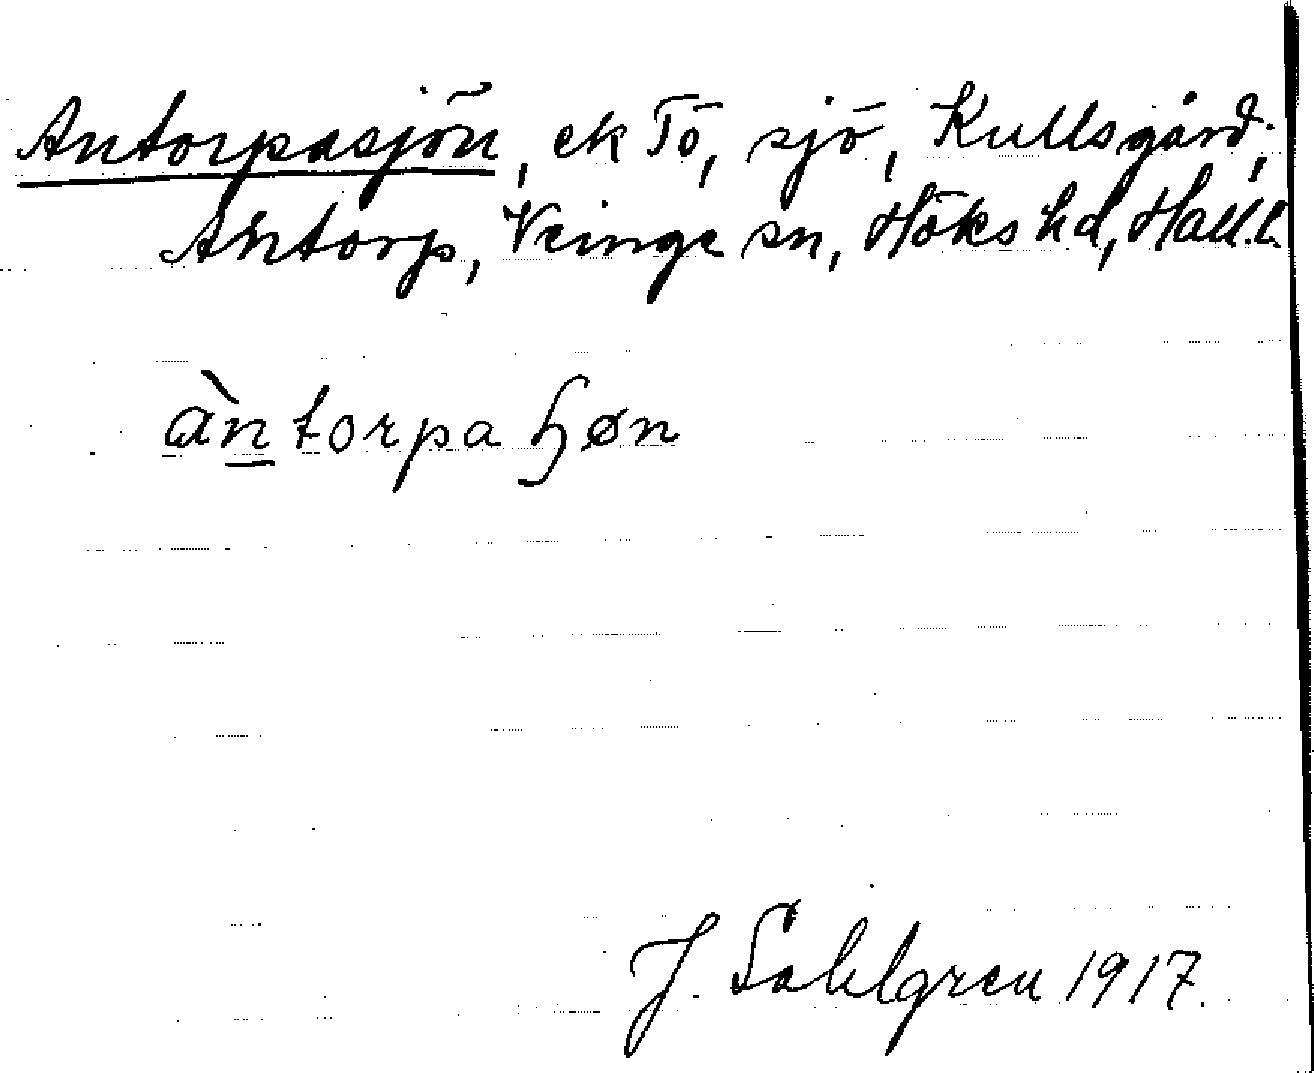 Antorpasjön, ek Tö, sjö, Kullsgård,
Antorp, Veinge sn, Höks hd, Hall.l.
àntorpa ɧøn
J. Sahlgren 1917.